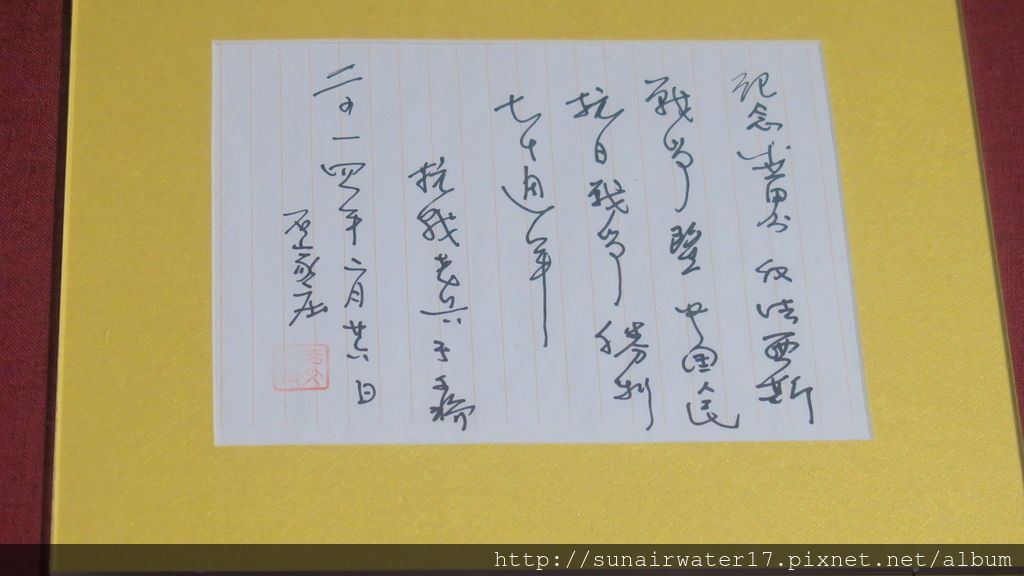 記念世界反法西斯
戰爭暨中国人民
抗日戰爭勝利
七十週年
抗戰老兵
二〇一四年二月廿六日
石家庄
http://sunairwater17.pixnet.net/album